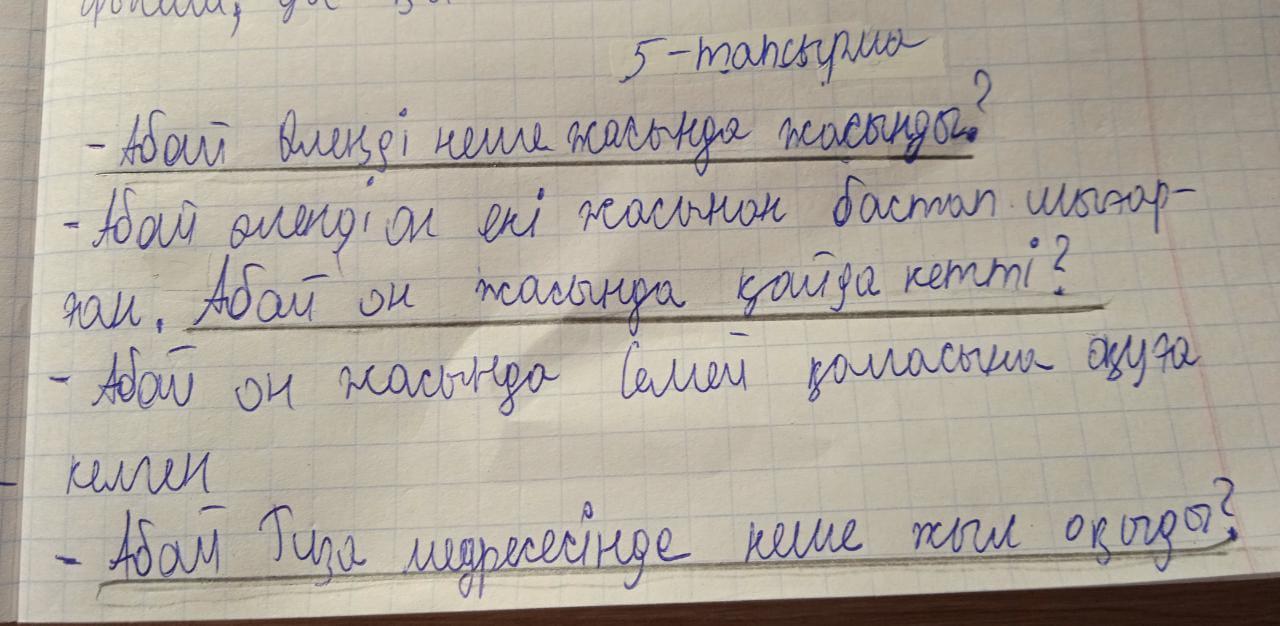 5-тапсырма
- Абай өлеңді неше жасында жасынды?
- Абай өлеңді он екі жасынан бастап шығар-
ған. Абай он жасында қайда кетті?
- Абай он жасында Семей қаласына оқуға
келген
- Абай Риза медресесінде неше жыл оқыды?